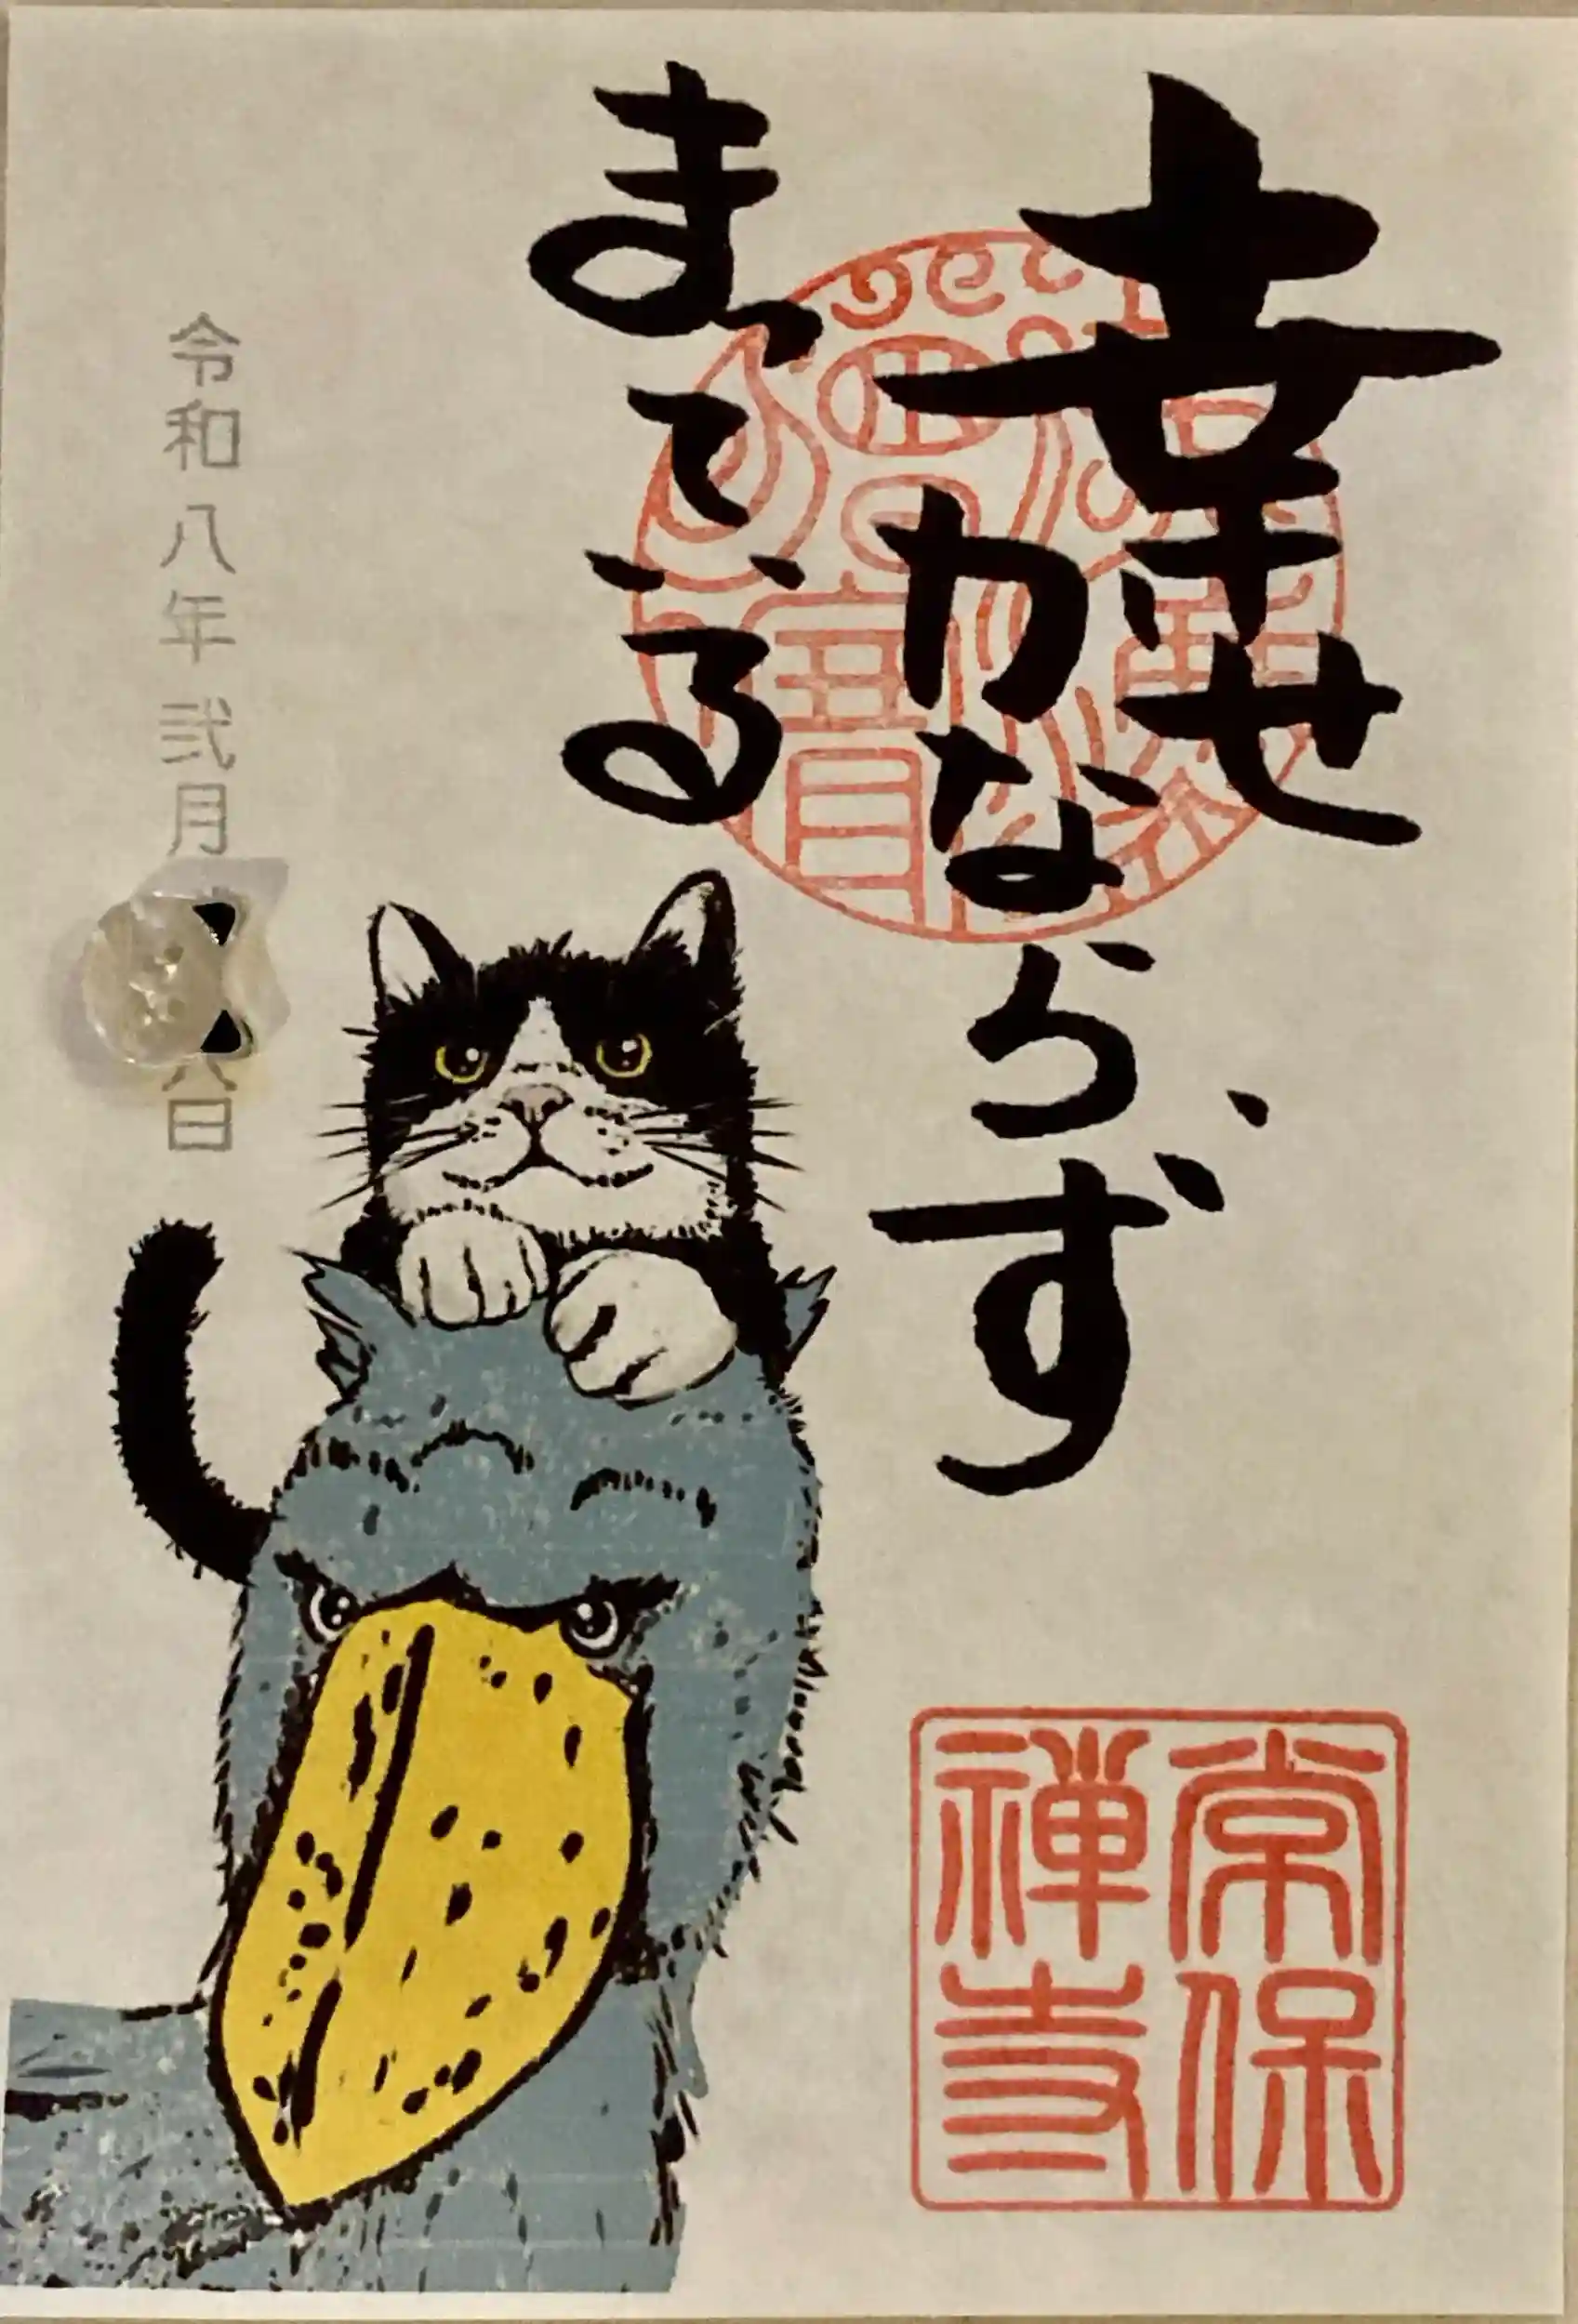 幸せ
かならず
まっている
令和八年弐月
日
常保
禅寺